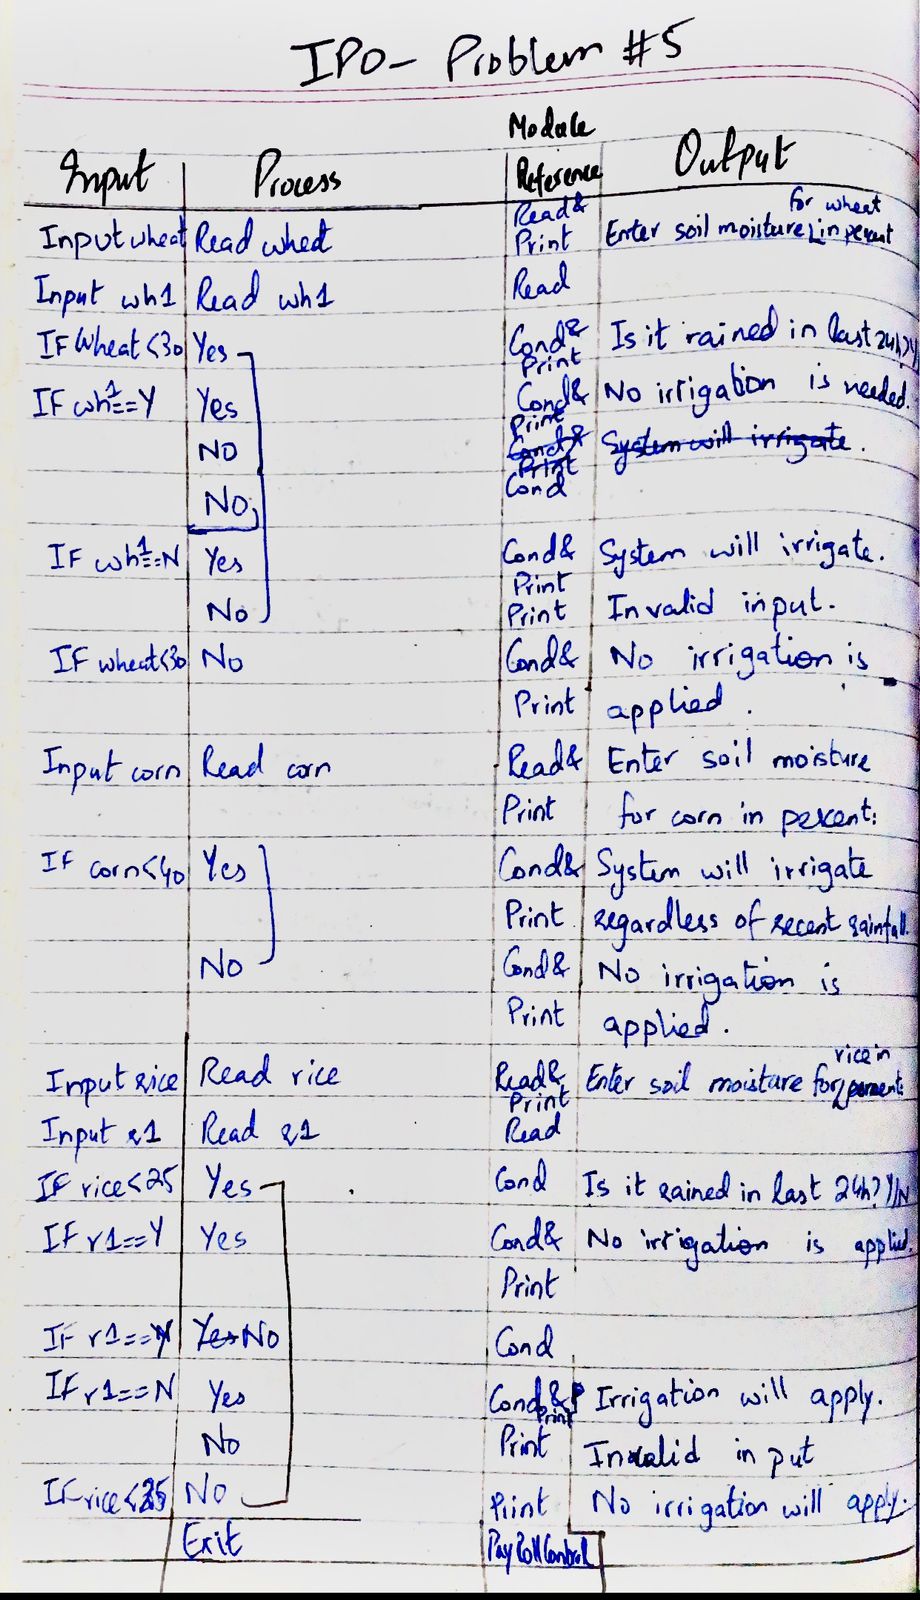 IPO- Problem #5
Input Process Module Reference Output
Input wheat Read wheat Read& Print Enter soil moisture for wheat in percent
Input wh1 Read wh1 Read
IF Wheat<30 Yes Cond& Print Is it rained in last 24h?Y/
IF wh1==Y Yes Cond& Print No irrigation is needed.
NO Cond& Print System will irrigate.
No Cond
IF wh1==N Yes Cond& Print System will irrigate.
No Print Invalid input.
IF wheat<30 No Cond& No irrigation is
Print applied.
Input corn Read corn Read& Enter soil moisture
Print for corn in percent:
IF corn<40 Yes Cond& System will irrigate
Print regardless of recent rainfall.
No Cond& No irrigation is
Print applied.
Input rice Read rice Read& Print Enter soil moisture for rice in percent:
Input r1 Read r1 Read
IF rice<25 Yes Cond Is it rained in last 24h? Y/N
IF r1==Y Yes Cond& No irrigation is applied.
Print
IF r1==Y Yes No Cond
IF r1==N Yes Cond& Print Irrigation will apply.
No Print Invalid in put
IF rice<25 No Print No irrigation will apply.
Exit PayRollControl